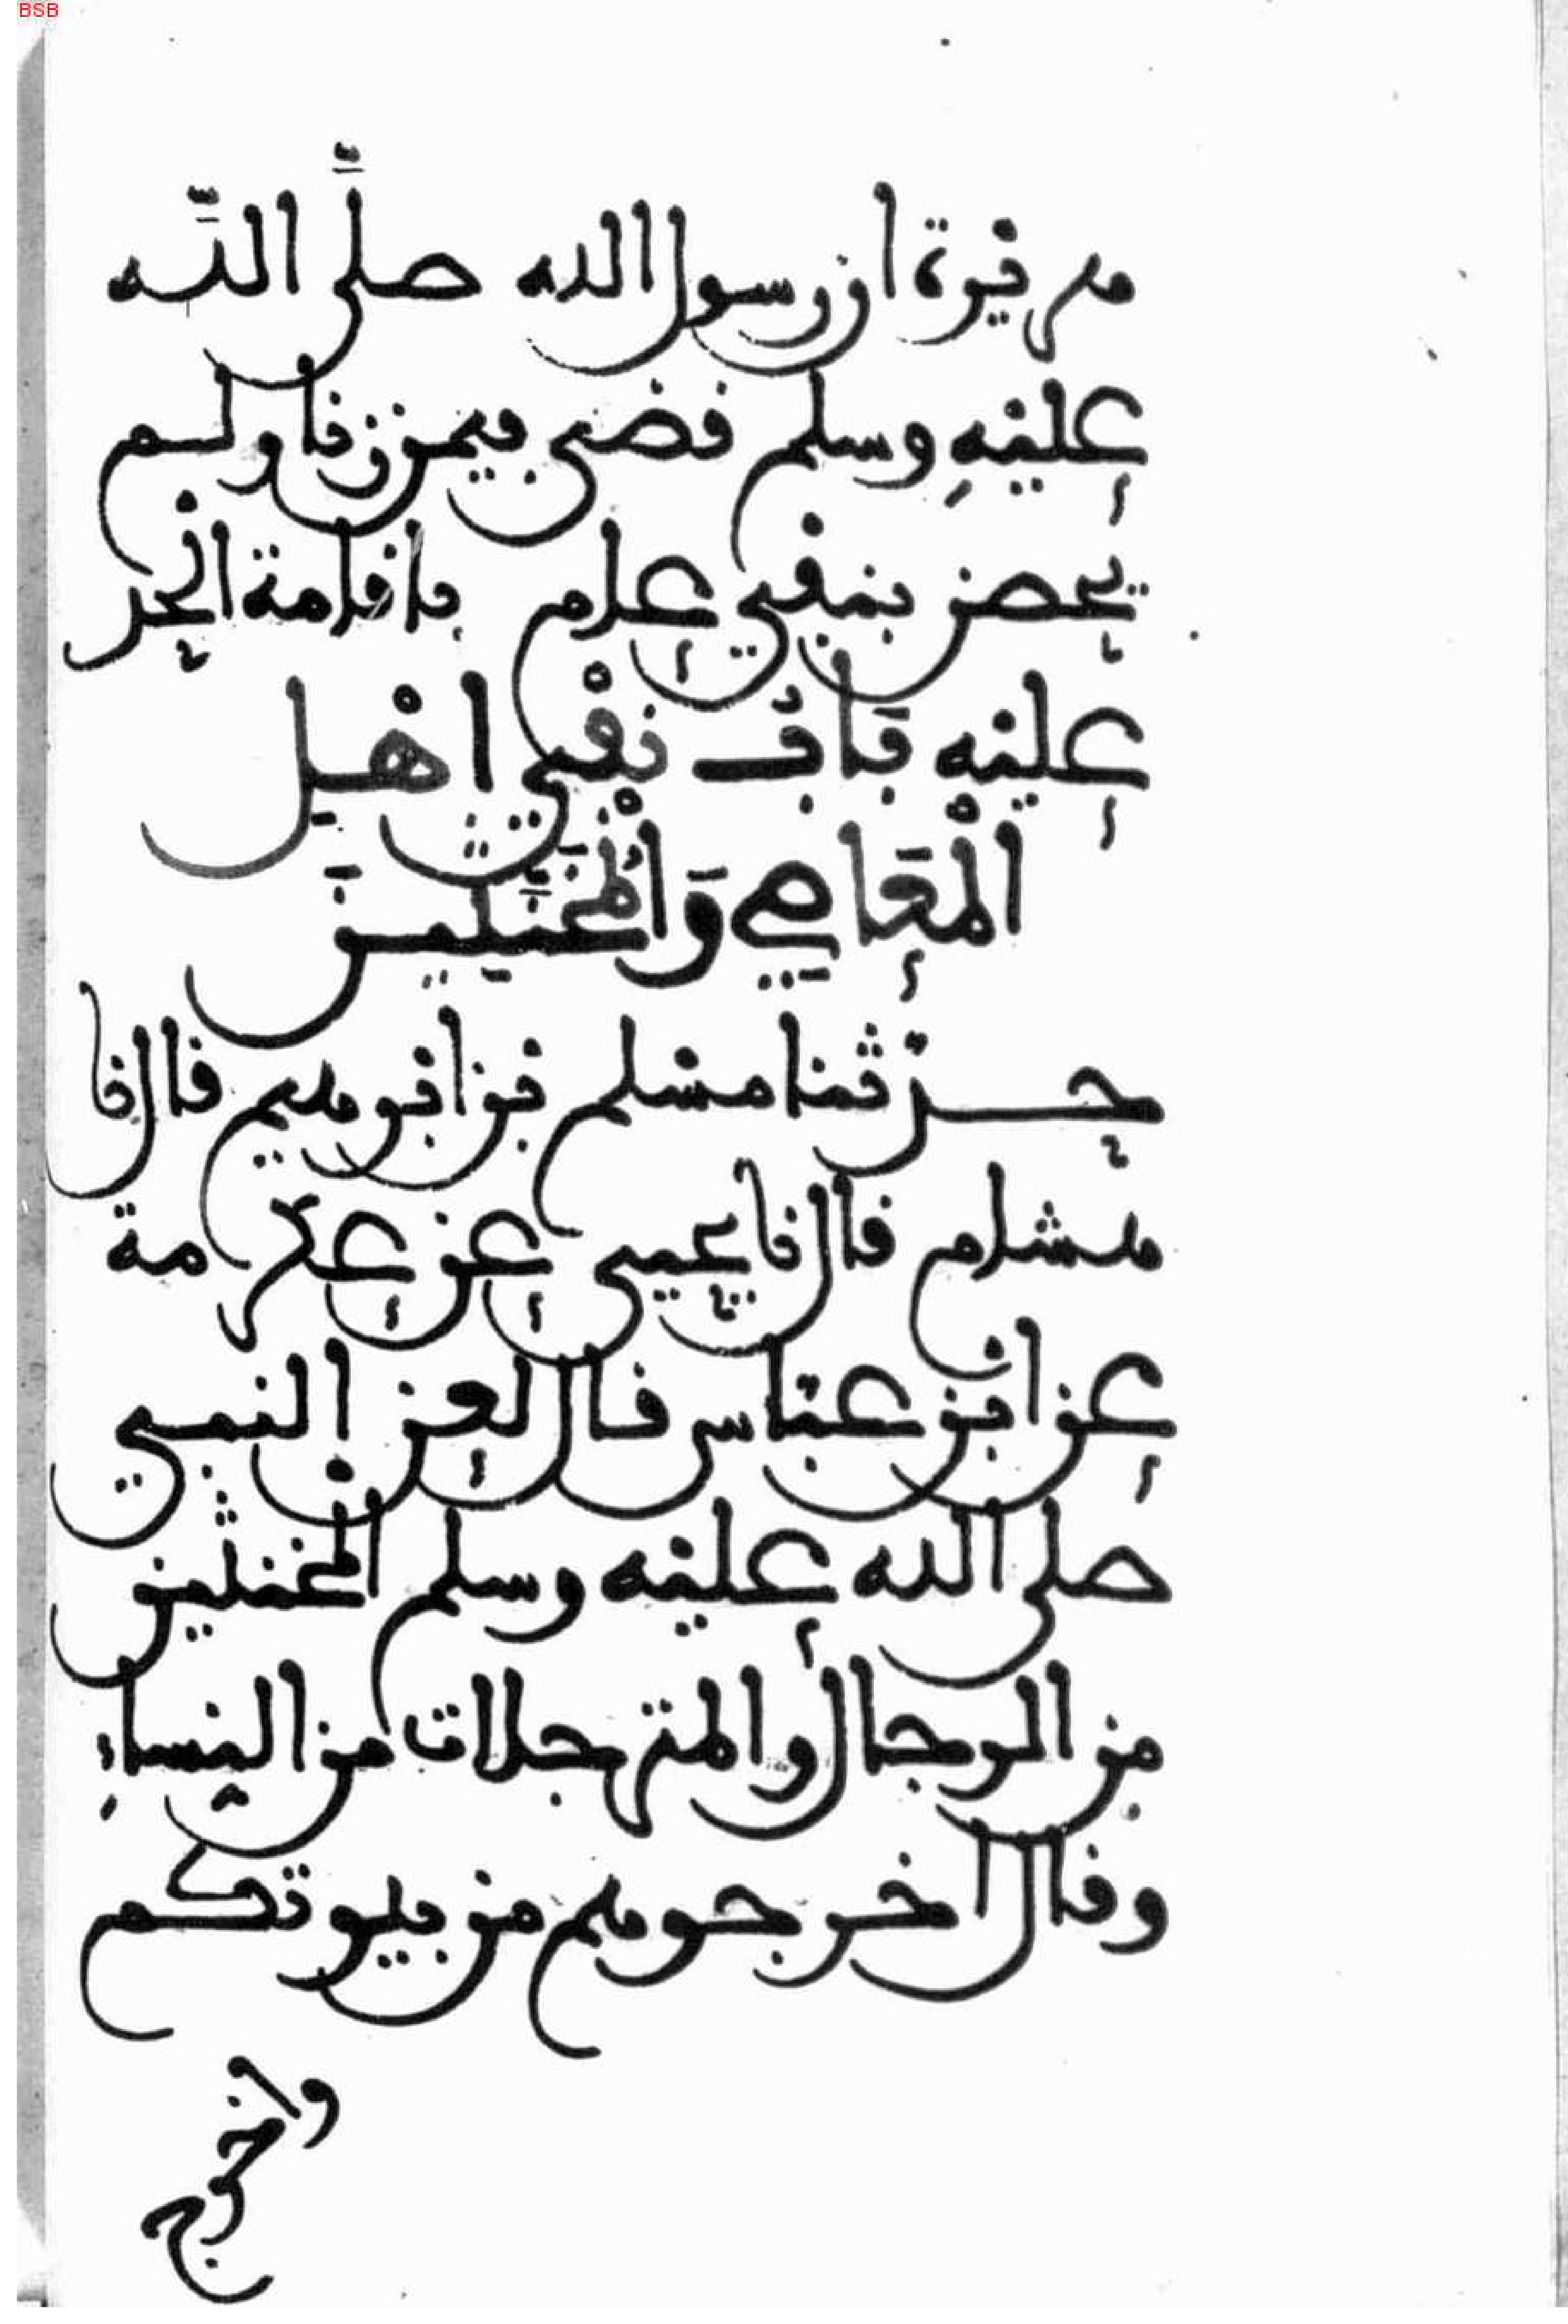 BSB
هريرة ان رسول الله صلى الله
عليه وسلم قضى فيمن زنا ولم
يحصن بنفي عام باقامة الحد
عليه بَابُ نفْي اهْل
الْمَعَاصِي وَالْمُخَنَّثِينَ
حدثنا مسلم بن ابرهيم قال نا
هشام قال نا يحيى عن عكرمة
عن ابن عباس قال لعن النبي
صلى الله عليه وسلم المخنثين
من الرجال والمترجلات من النساءِ
وقال اخرجوهم من بيوتكم
واخرج